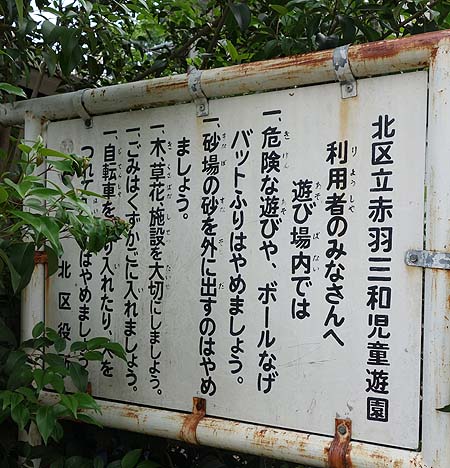 北区立赤羽三和児童遊園
利用者のみなさんへ
遊び場内では
一、危険な遊びや、ボールなげ
バットふりはやめましょう。
一、砂場の砂を外に出すのはやめ
ましょう。
一、木草花、施設を大切にしましょう。
一、ごみはくずかごに入れましょう。
一、自転車を り入れたり、犬を
つれて はやめまし
北区役